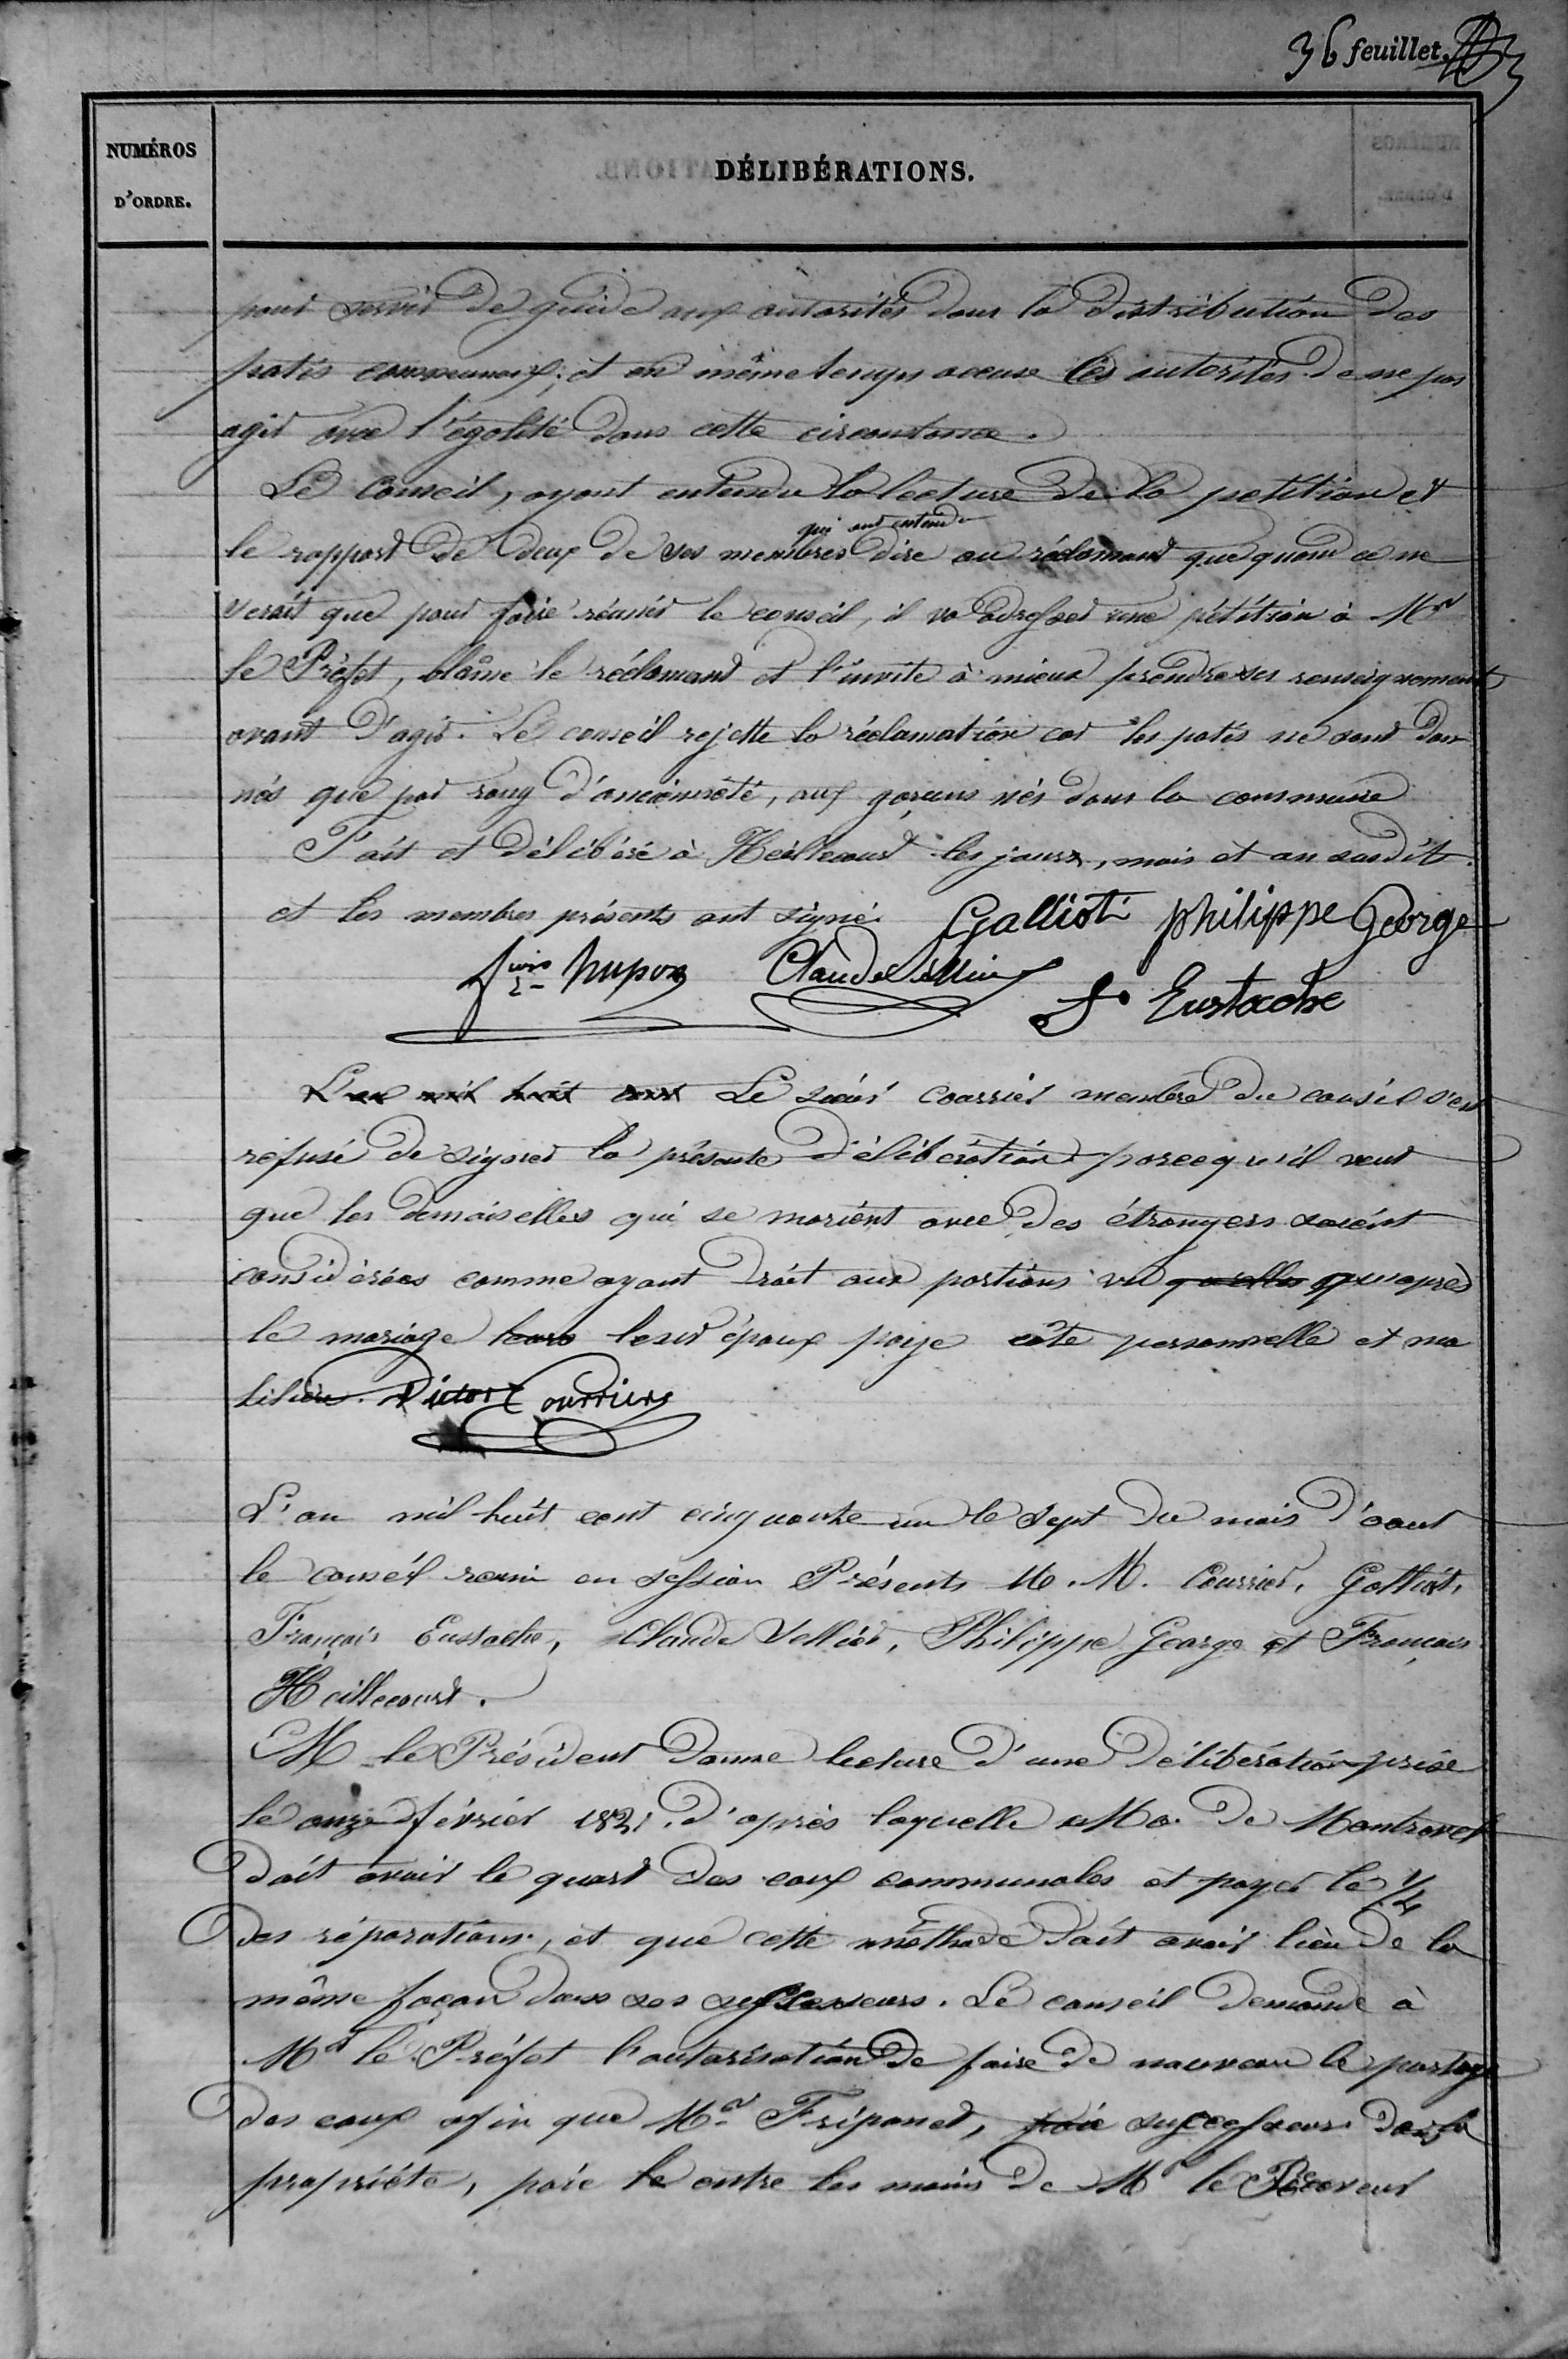 36 feuillet.
NUMÉROS
D'ORDRE.
DÉLIBÉRATIONS.
pour servir de guide aux autorités dans la distribution des
patis communaux; et en même temps accuse les autorités de ne pas
agir avec l'égalité dans cette circonstance.
Le Conseil, ayant entendu la lecture de la petition et
qui ont entendu
le rapport de deux de ses membres dire au réclamant que quand ce ne
serait que pour faire réunir le conseil, il va adresser une pétition à Mr
le Préfet, blâme le réclamant et l'invite à mieux prendre ses renseignement
avant d'agir. Le conseil rejette la réclamation car les patis ne sont don
nés que par rang d'ancienneté, aux garçons nés dans la commune
Fait et délibéré à Heillecourt les jours, mois et an susdits
et les membres présents ont signé. Galliot philippe George
fois Claude f. Eustache
L'an mil huit cent Le sieur Courrier membre du conseil s'est
refusé de signer la présente délibération parcequ'il veut
que les demoiselles qui se marient avec des étrangers soient
considérées comme ayant droit aux portions vu qu'elles qu'après
le mariage leurs leur époux paye côte personnelle et mo
bilière. Victor Courrier
L'an mil huit cent cinquante un le sept du mois d'aout
le conseil reuni en session Présents M. M. Courrier, Galliot,
François Eustache, Claude Vellier, Philippe George et François
Heillecourt.
M le Président donne lecture d'une délibération prise
le onze février 1821, d'après laquelle Ma. de Montrovel
doit avoir le quart des eaux communales et payer le 1/4
des réparations, et que cette méthode doit avoir lieu de la
même façon dans ses successeurs. Le conseil demande à
Mr le Préfet l'autorisation de faire de nouveau le partage
des eaux afin que Mr Friponet, successeur dans la
propriéte, paie le entre les mains de Mr le Receveur